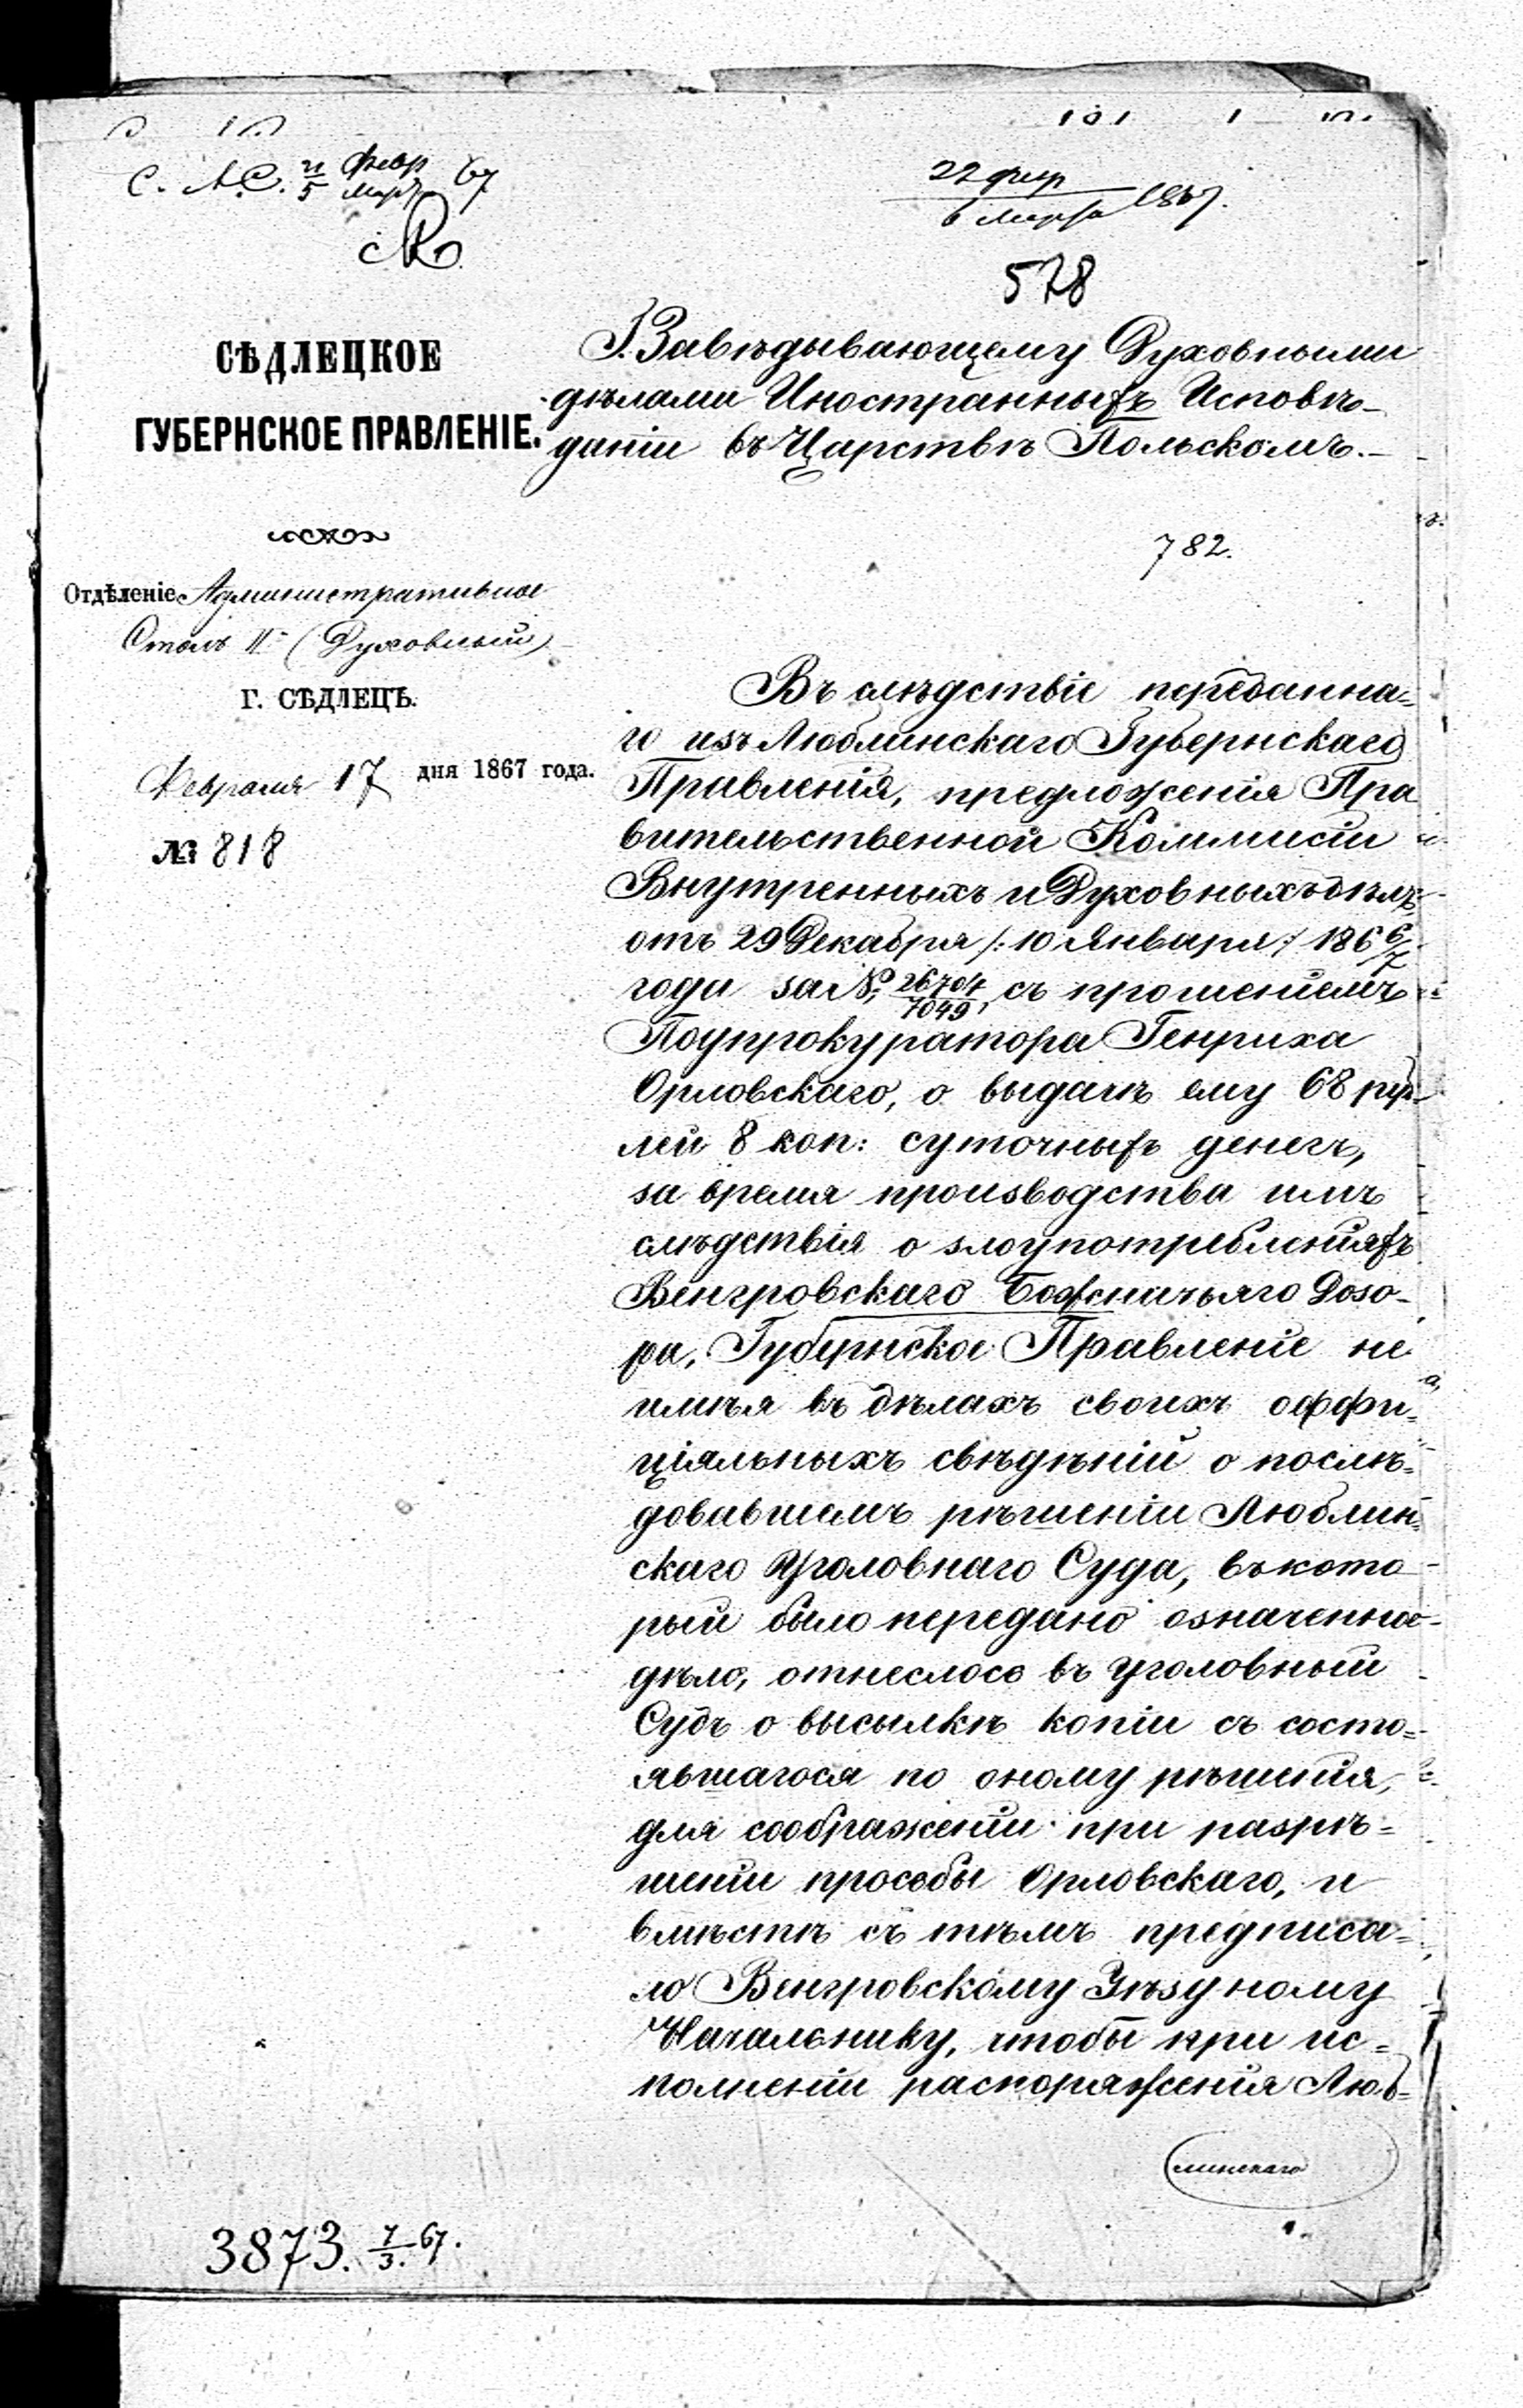 22 февр
6 Марта 1867.
578
СѢДЛЕЦКОЕ
ГУБЕРНСКОЕ ПРАВЛЕНІЕ.
Отдѣленіе Административное
Столъ II (Духовный)
Г. СѢДЛЕЦЪ.
Февраля 17 дня 1867 года.
№ 818
Г. Завѣдывающему Духовными
дѣлами Иностранныхъ Исповѣ-
даніи въ Царствѣ Польскомъ.-
782.
Въ слѣдствіе переданна=
го изъ Люблинскаго Губернскаго
Правленія, предложенія Пра
вительственной Коммисіи
Внутренныхъ и Духовныхъ дѣлъ
отъ 29 Декабря /: 10 Января :/ 1866/7
года за № 26704/7049, съ прошеніемъ
Подпрокуратора Генриха
Орловскаго, о выдачѣ ему 68 руб-
лей 8 коп: суточныхъ денегъ,
за время производства имъ
слѣдствія о злоупотребленіяхъ
Венгровскаго Божничьяго Дозо-
ра, Губернское Правленіе не
имѣя въ дѣлахъ своихъ оффи=
ціяльныхъ свѣдѣній о послѣ=
довавшемъ рѣшеніи Люблин=
скаго Уголовнаго Суда, въ кото
рый было передано означенное
дѣло, отнеслось въ Уголовный
Судъ о высылкѣ копіи съ состо=
явшагося по оному рѣшенія,
для соображеніи при разрѣ=
шеніи просьбы Орловскаго, и
вмѣстѣ съ тѣмъ предписа=
ло Венгровскому Уѣздному
Начальнику, чтобы при ис=
полненіи распоряженія Люб=
линскаго
3873. 7/3. 67.